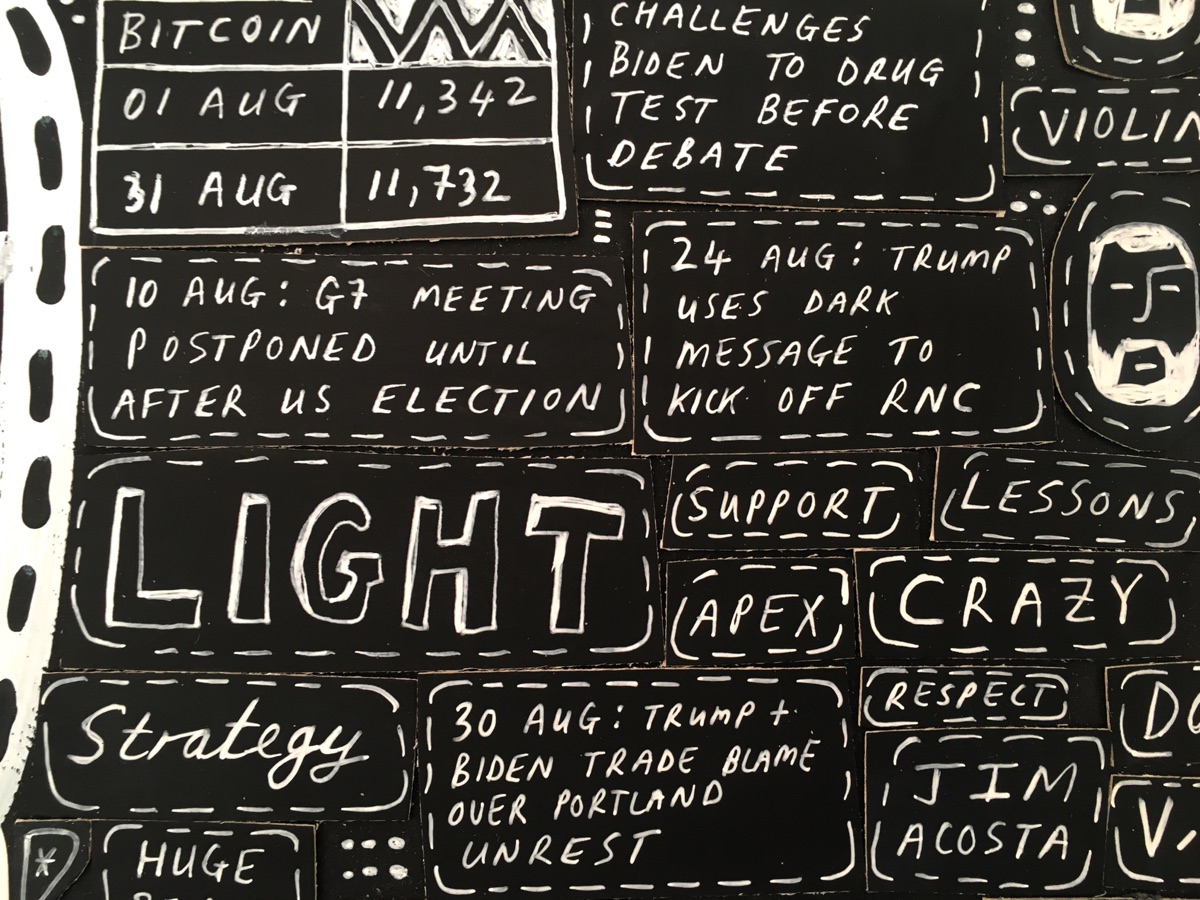 BITCOIN
01 AUG 11,342
31 AUG 11,732
CHALLENGES
BIDEN TO DRUG
TEST BEFORE
DEBATE
10 AUG: G7 MEETING
POSTPONED UNTIL
AFTER US ELECTION
24 AUG: TRUMP
USES DARK
MESSAGE TO
KICK OFF RNC
LIGHT
SUPPORT
LESSONS
APEX
CRAZY
Strategy
30 AUG: TRUMP +
BIDEN TRADE BLAME
OVER PORTLAND
UNREST
RESPECT
JIM
ACOSTA
HUGE